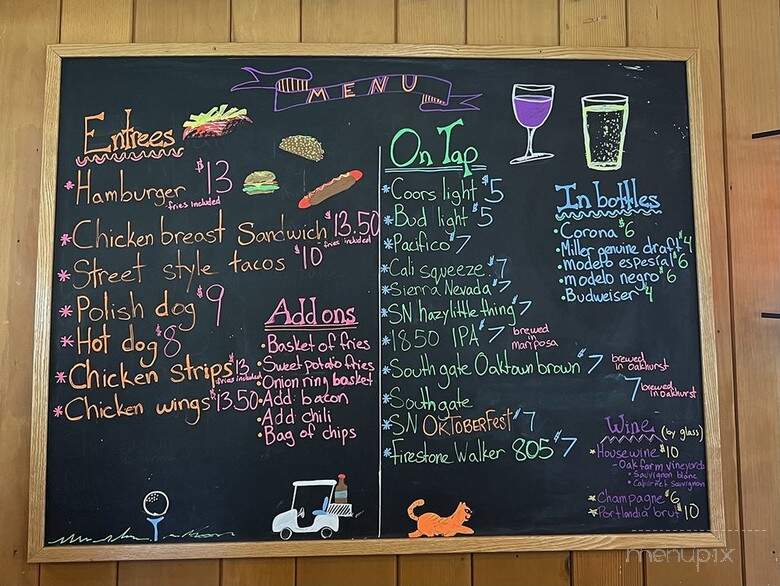 MENU
Entrees
*Hamburger $13
fries included
*Chicken breast Sandwich $13.50
-fries included
*Street style tacos $10
*Polish dog $9
*Hot dog $8
*Chicken strips $13
fries included
*Chicken wings $13.50
Add ons
•Basket of fries
•Sweet potato fries
•Onion ring basket
•Add bacon
•Add chili
•Bag of chips
On Tap
*Coors light $5
*Bud light $5
*Pacifico $7
*Cali squeeze $7
*Sierra Nevada $7
*SN hazy little thing $7
*1850 IPA $7 brewed
mariposa
*South gate Oaktown brown $7 brewed
in oakhurst
*Southgate $7 brewed
in oakhurst
*SN OKTOBERFEST $7
*Firestone Walker 805 $7
In bottles
•Corona $6
•Miller genuine draft $4
•Modelo espesial $6
•modelo negro $6
•Budweiser $4
Wine (by glass)
*House wine $10
-Oak farm vineyards
•Sauvignon blanc
•Cabernet Sauvignon
*Champagne $6
*Portlandia brut $10
menupix